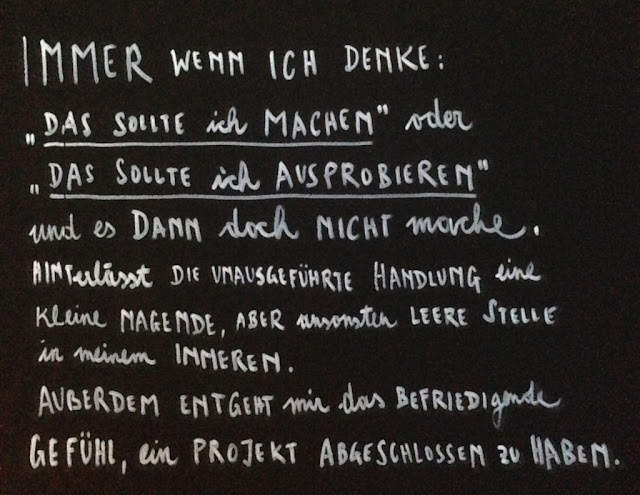 IMMER WENN ICH DENKE:
„DAS SOLLTE ich MACHEN" oder
„DAS SOLLTE ich AUSPROBIEREN"
und es DANN doch NICHT mache.
HINTerlässt DIE UNAUSGEFÜHRTE HANDLUNG eine
kleine NAGENDE, ABER ansonsten LEERE STELLE
in meinem INNEREN.
AUßERDEM ENTGEHT mir das BEFRIEDIGende
GEFÜHL, ein PROJEKT ABGESCHLOSSEN ZU HABEN.